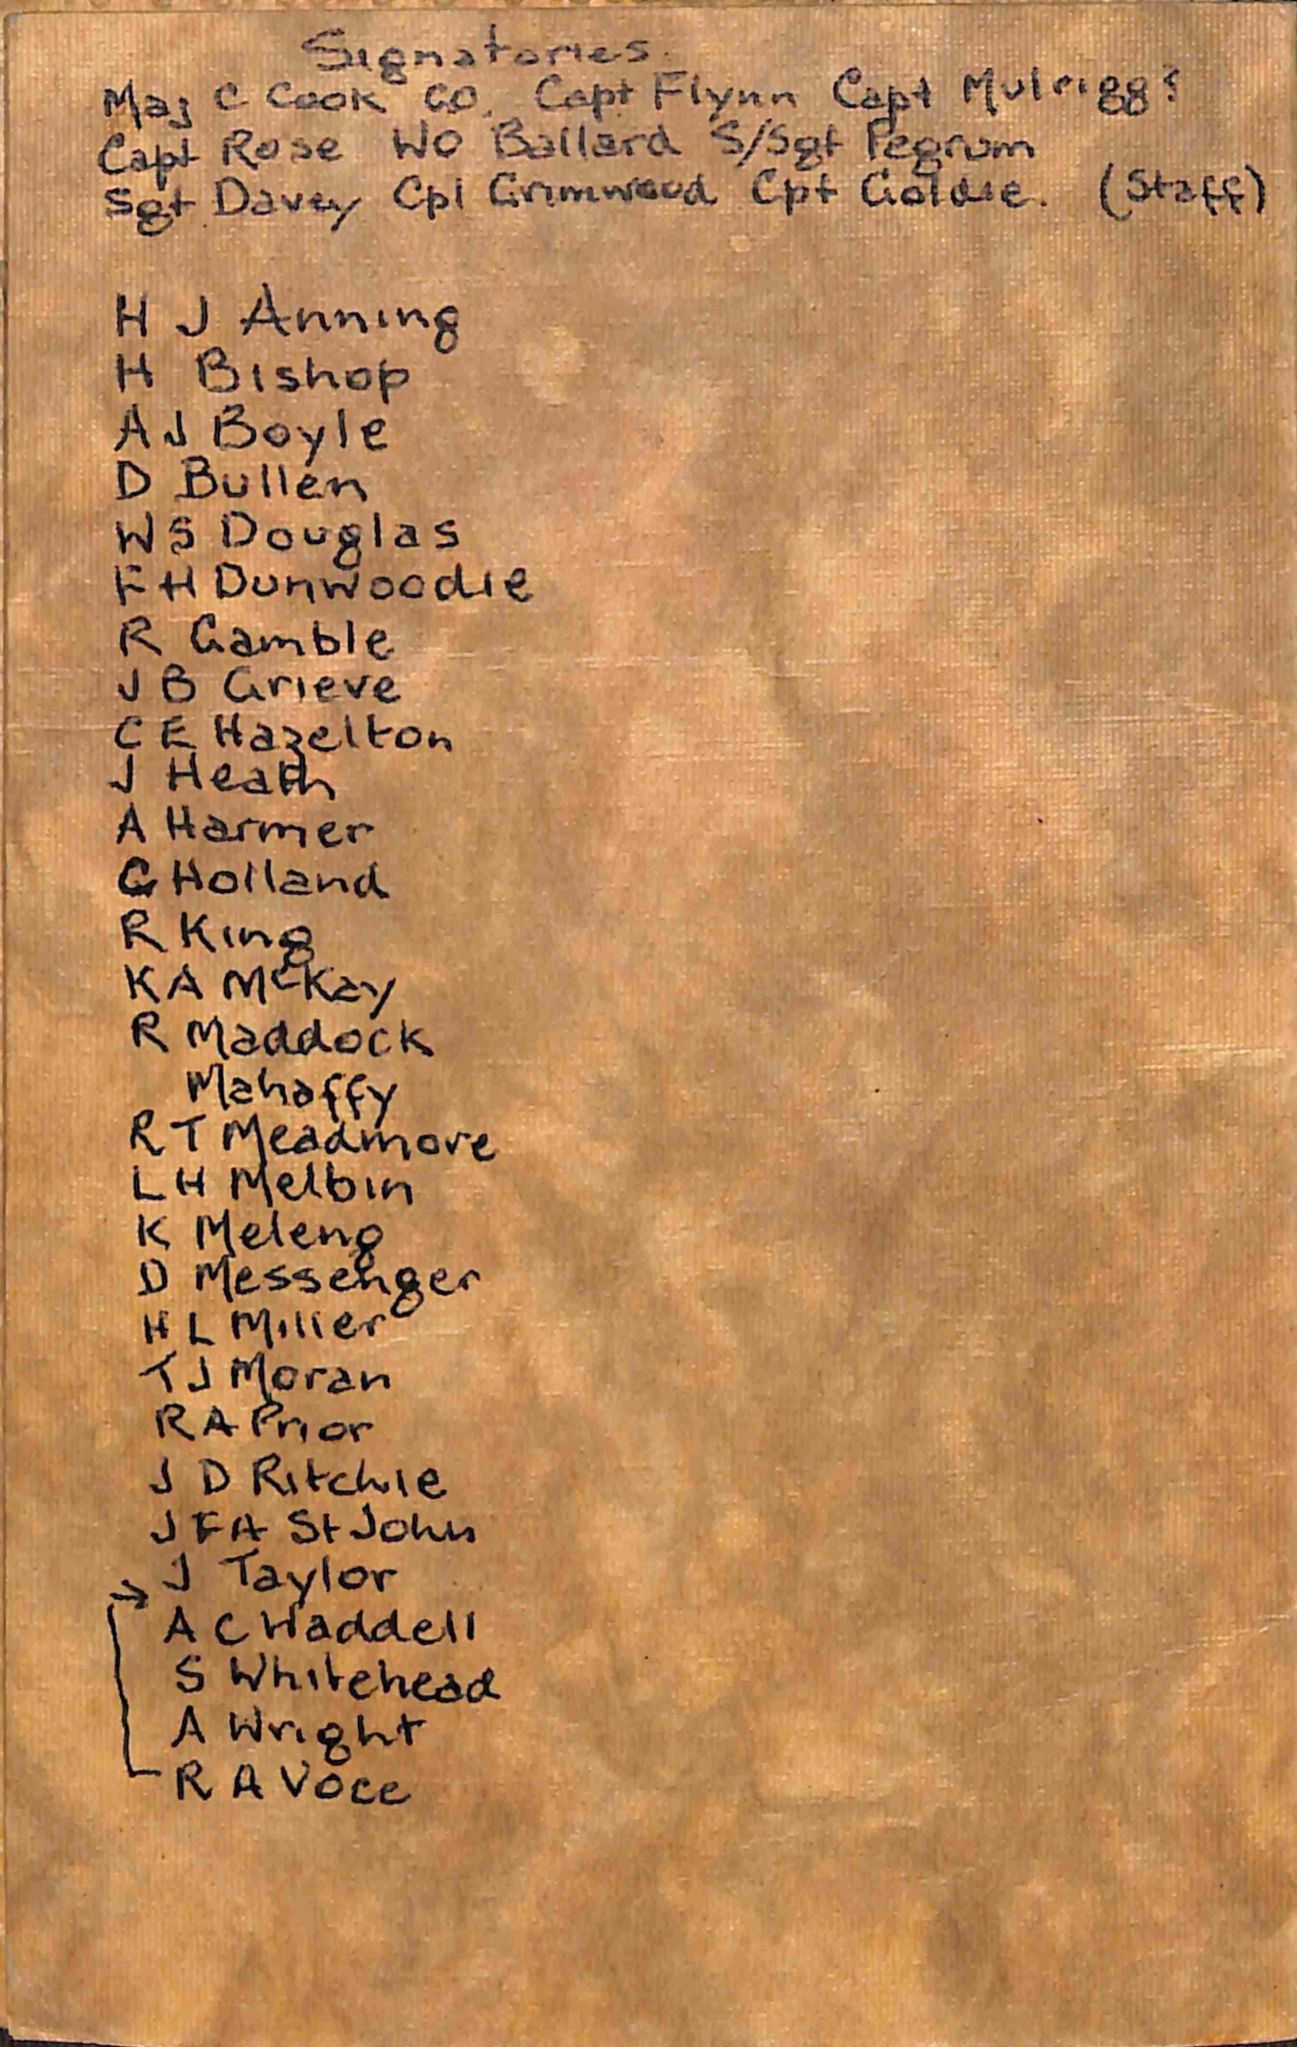 Signatories.
Maj C Cook CO. Capt Flynn Capt Mulrigg?
Capt Rose WO Ballard S/Sgt Pegrum
Sgt Davey Cpl Grimwood Cpt Goldie. (Staff)
H J Anning
H Bishop
A J Boyle
D Bullen
W S Douglas
F H Dunwoodie
R Gamble
J B Grieve
C E Hazelton
J Heath
A Harmer
G Holland
R King
K A McKay
R Maddock
Mahaffy
R T Meadmore
L H Melbin
K Meleng
D Messenger
H L Miller
T J Moran
R A Prior
J D Ritchie
J F A St John
J Taylor
A C Waddell
S Whitehead
A Wright
R A Voce